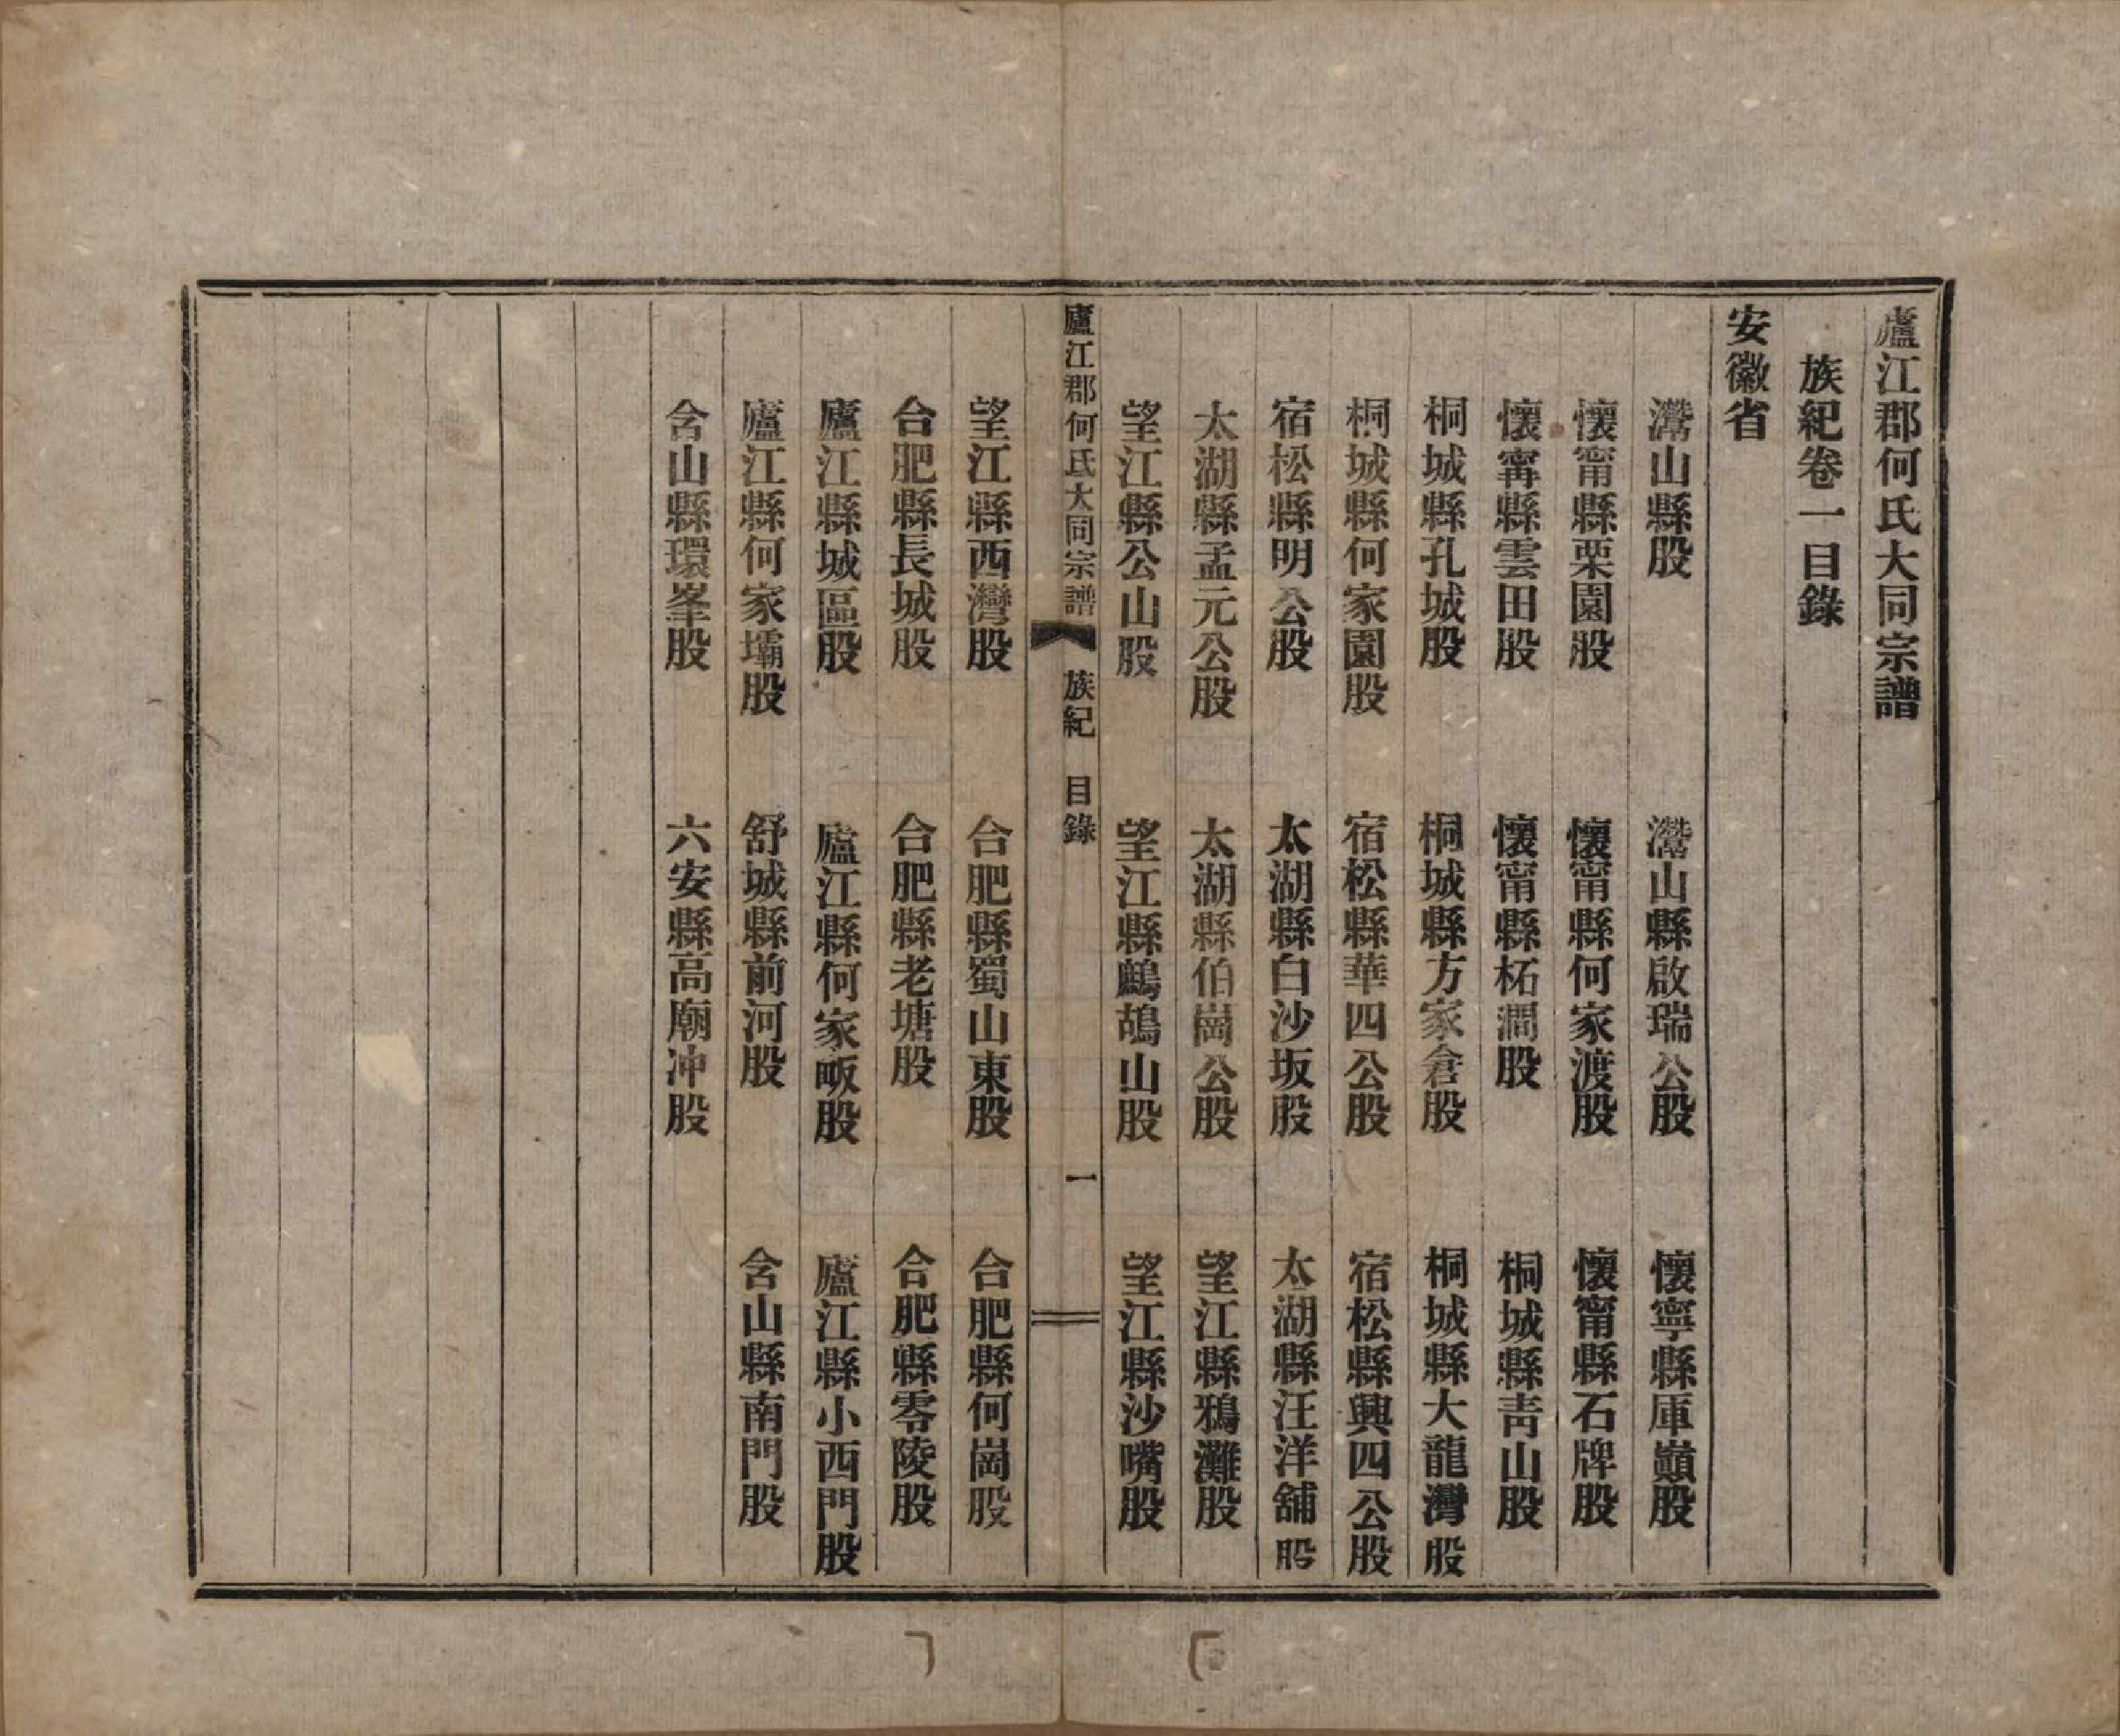 廬江郡何氏大同宗譜
族紀卷一目錄
安徽省
灊山縣股　灊山縣啟瑞公股　懷寧縣庫巔股
懷甯縣栗園股　懷甯縣何家渡股　懷甯縣石牌股
懷寗縣雲田股　懷甯縣柘澗股　桐城縣青山股
桐城縣孔城股　桐城縣方家倉股　桐城縣大龍灣股
桐城縣何家園股　宿松縣華四公股　宿松縣興四公股
宿松縣明公股　太湖縣白沙坂股　太湖縣汪洋舖股
太湖縣孟元公股　太湖縣伯崗公股　望江縣鴉灘股
望江縣公山股　望江縣鷓鴣山股　望江縣沙嘴股
廬江郡何氏大同宗譜　族紀　目錄　一
望江縣西灣股　合肥縣蜀山東股　合肥縣何崗股
合肥縣長城股　合肥縣老塘股　合肥縣零陵股
廬江縣城區股　廬江縣何家畈股　廬江縣小西門股
廬江縣何家壩股　舒城縣前河股　含山縣南門股
含山縣環峯股　六安縣高廟冲股